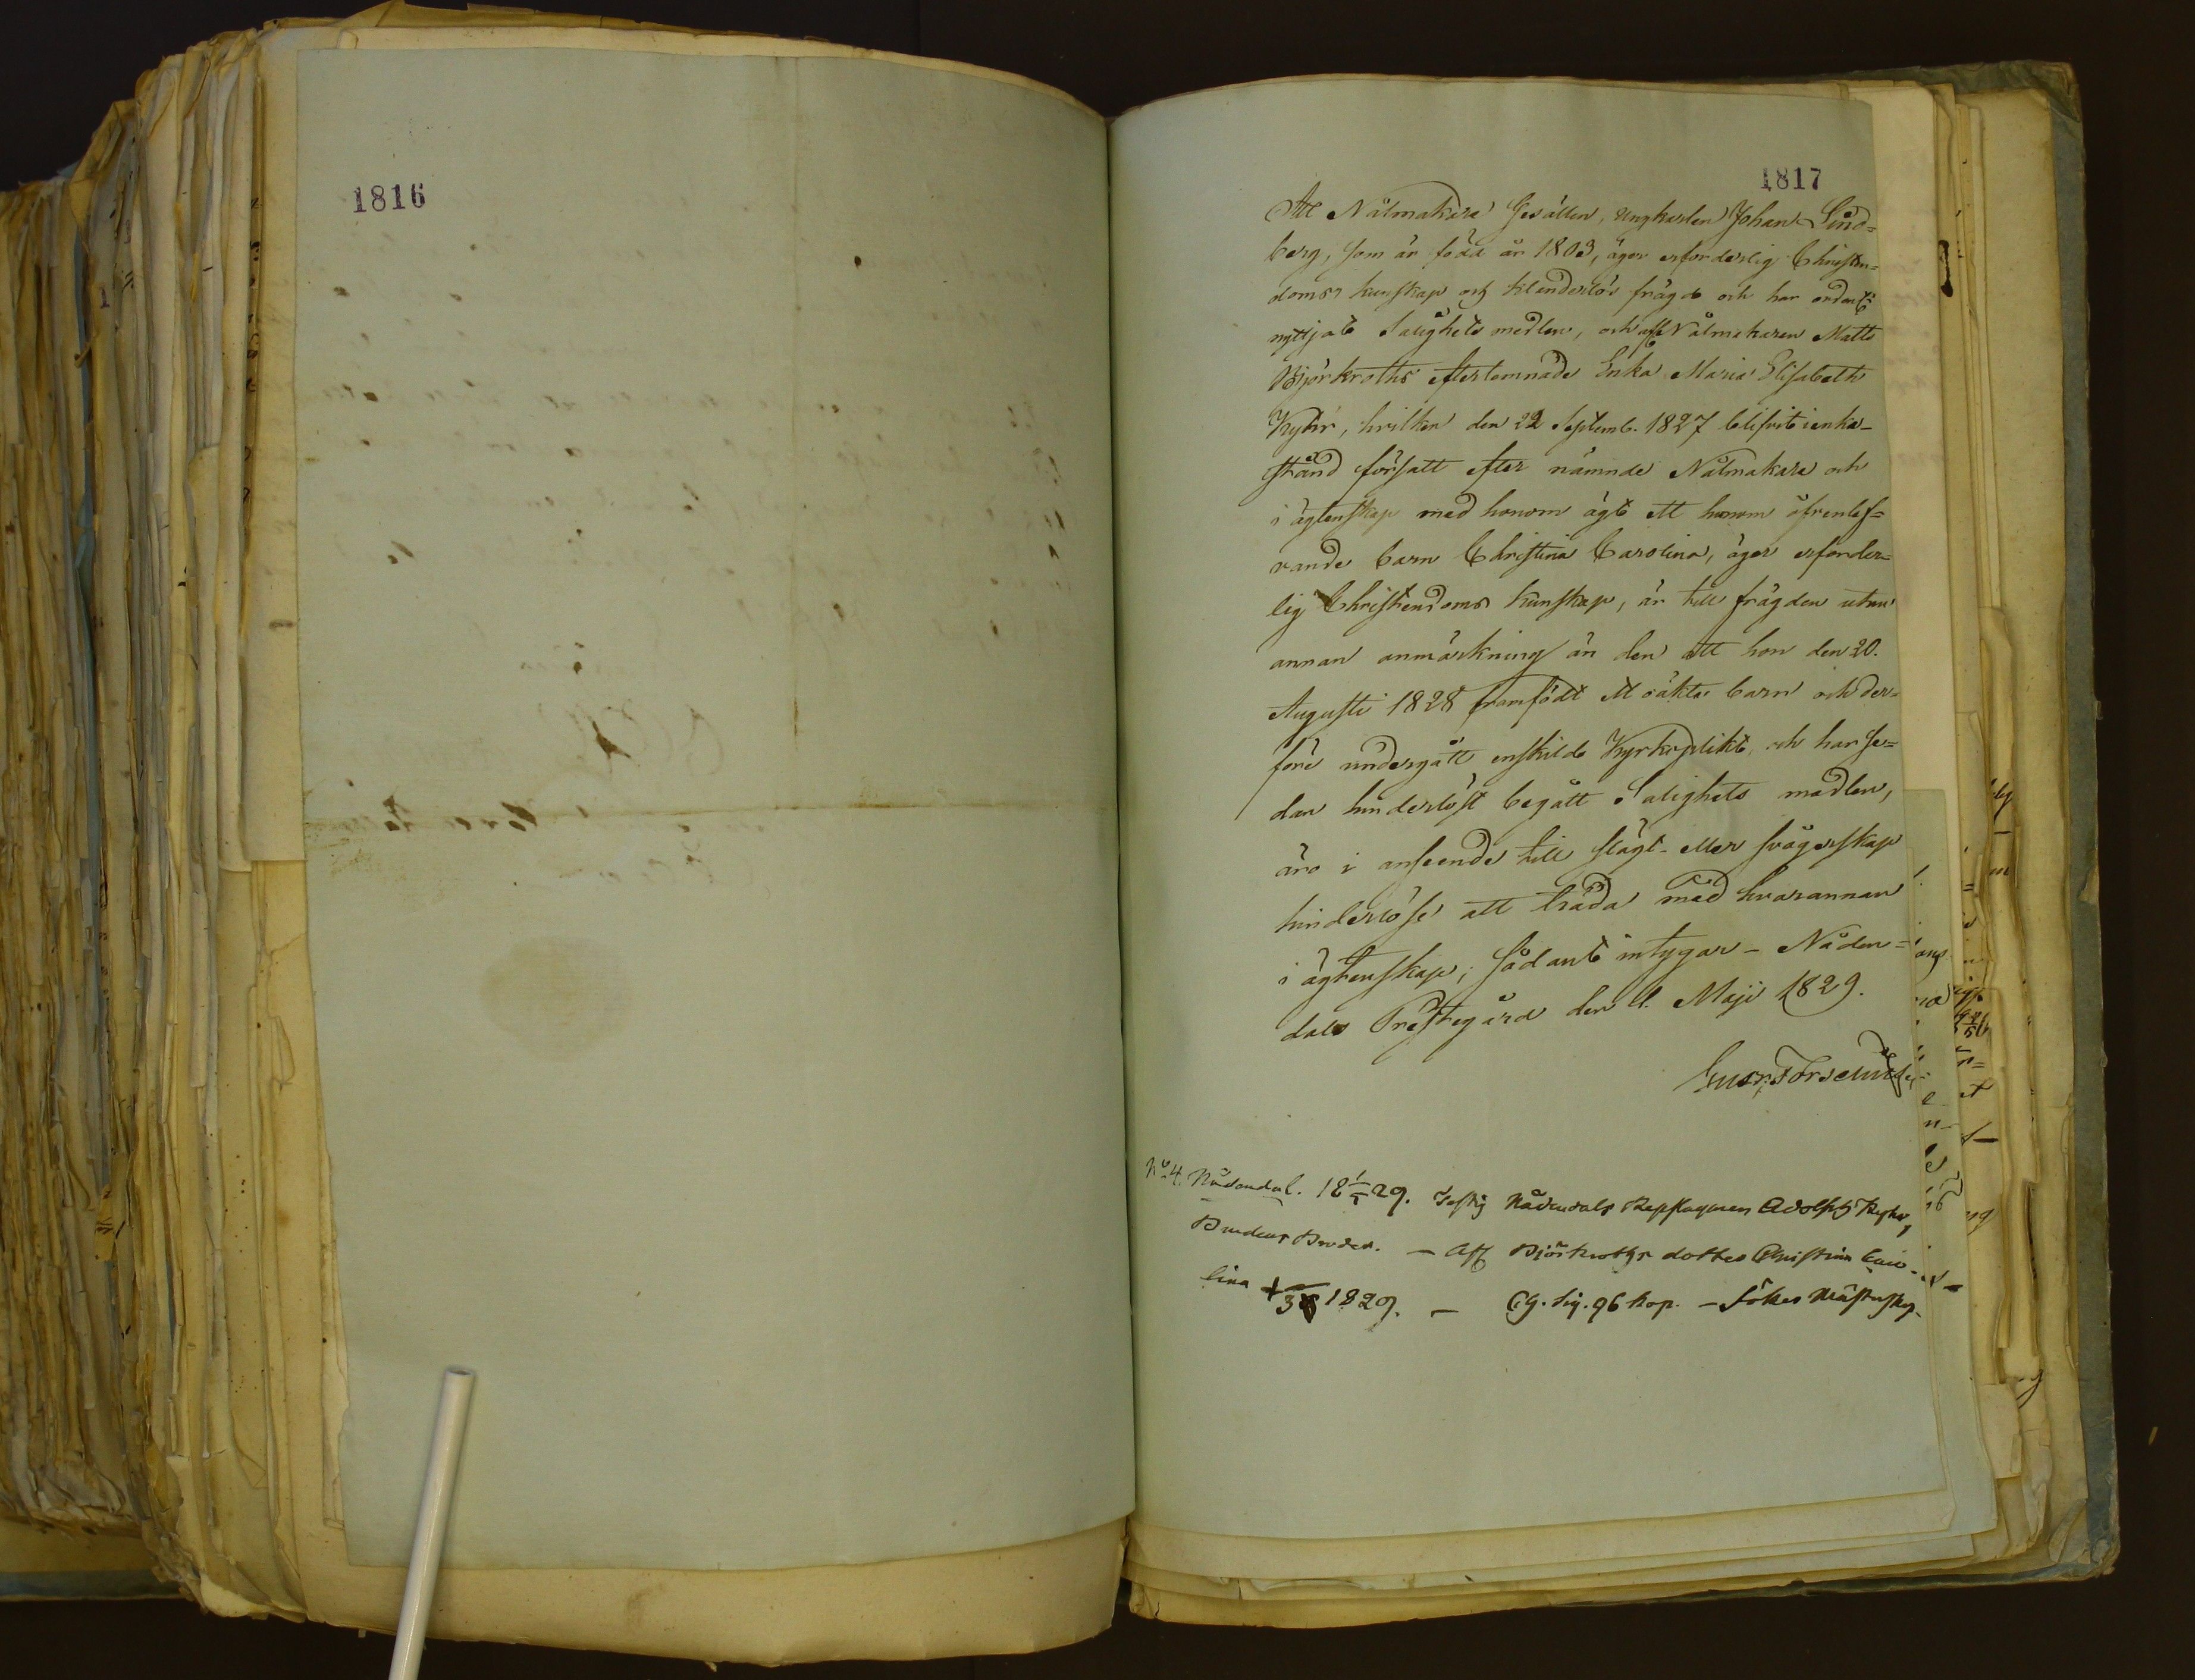 1816
1817
Att Nålmakare Gesällen, ungkarlen Johan Lind=
berg, som är född år 1803, äger erforderlig Christen=
doms kunskap och klanderlös frägd och har ordentl.
nyttjat Salighets medlen, och afl. Nålmakaren Matts
Björkroths efterlemnade Enka Maria Elisabeth
Kyhr, hvilken den 22 Septemb. 1827 blifvit i enka-
stånd försatt efter nämnde Nålmakare och
i ägtenskap med honom ägt ett honom öfverlef=
vande barn Christina Carolina, äger erforder=
lig Christendoms kunskap, är till frägden utan
annan anmärkning än den att hon den 20.
Augusti 1828 framfödt ett oäkta barn och der=
före undergått enskild Kyrkoplikt och har se=
dan hinderlöst begått Salighets medlen,
äro i anseende till slägt- eller svågerskap
hinderlöse att träda med hvarannan
i ägtenskap; Sådant intygar – Nåden=
dals Prestegård den 1. Maji 1829.
Nº 4. Nådendal. 18 1/5 29. Nådendals Adolph Kyhr,
Brudens Broder. – Afl. Björkroths dotter Christina Caro-
lina 1829. – 96 kop. – Söker